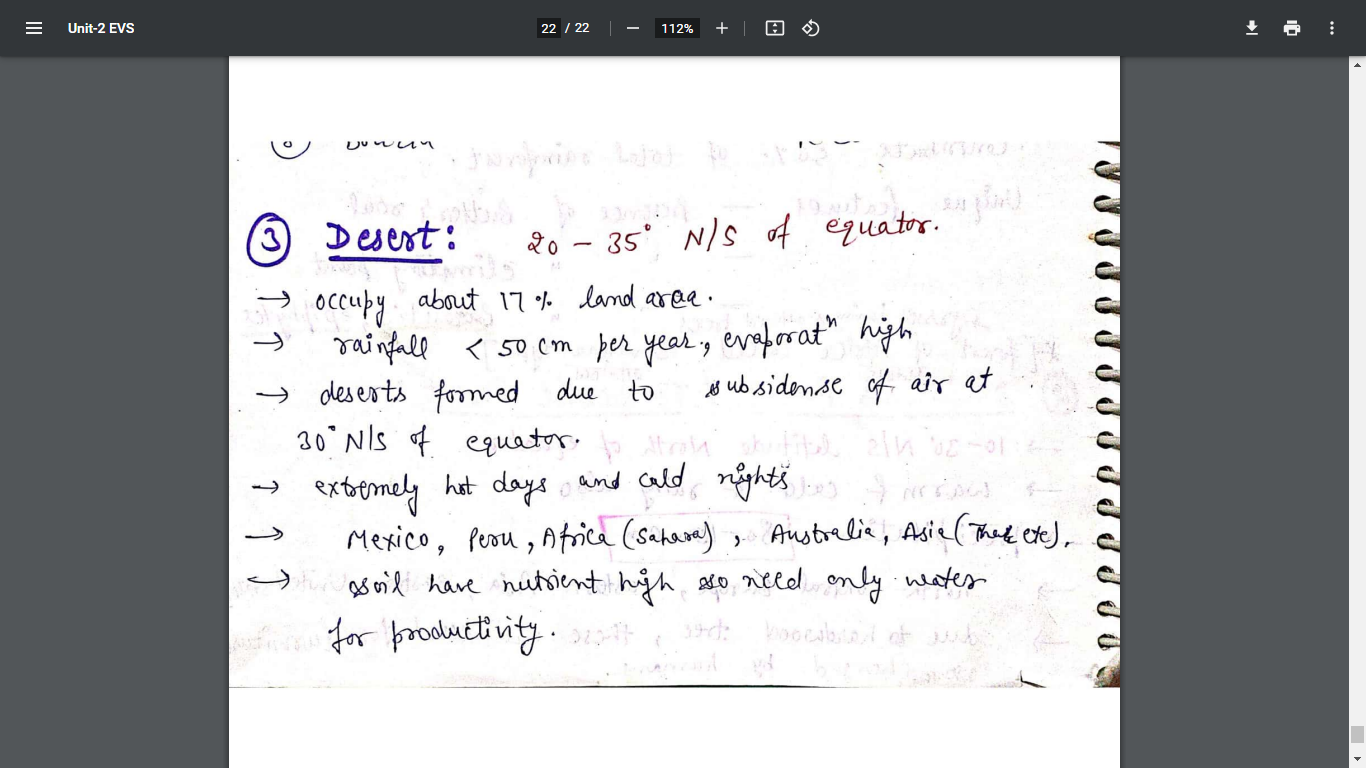 Unit-2 EVS
22 / 22
112%
3 Desert: 20 - 35° N/S of equator.
→ occupy about 17% land area.
→ rainfall < 50 cm per year, evaporatⁿ high
→ deserts formed due to subsidense of air at
30° N/S of equator.
→ extremely hot days and cold nights
→ Mexico, Peru, Africa (Sahara), Australia, Asia (Thar etc).
→ soil have nutrient high so need only water
for productivity.